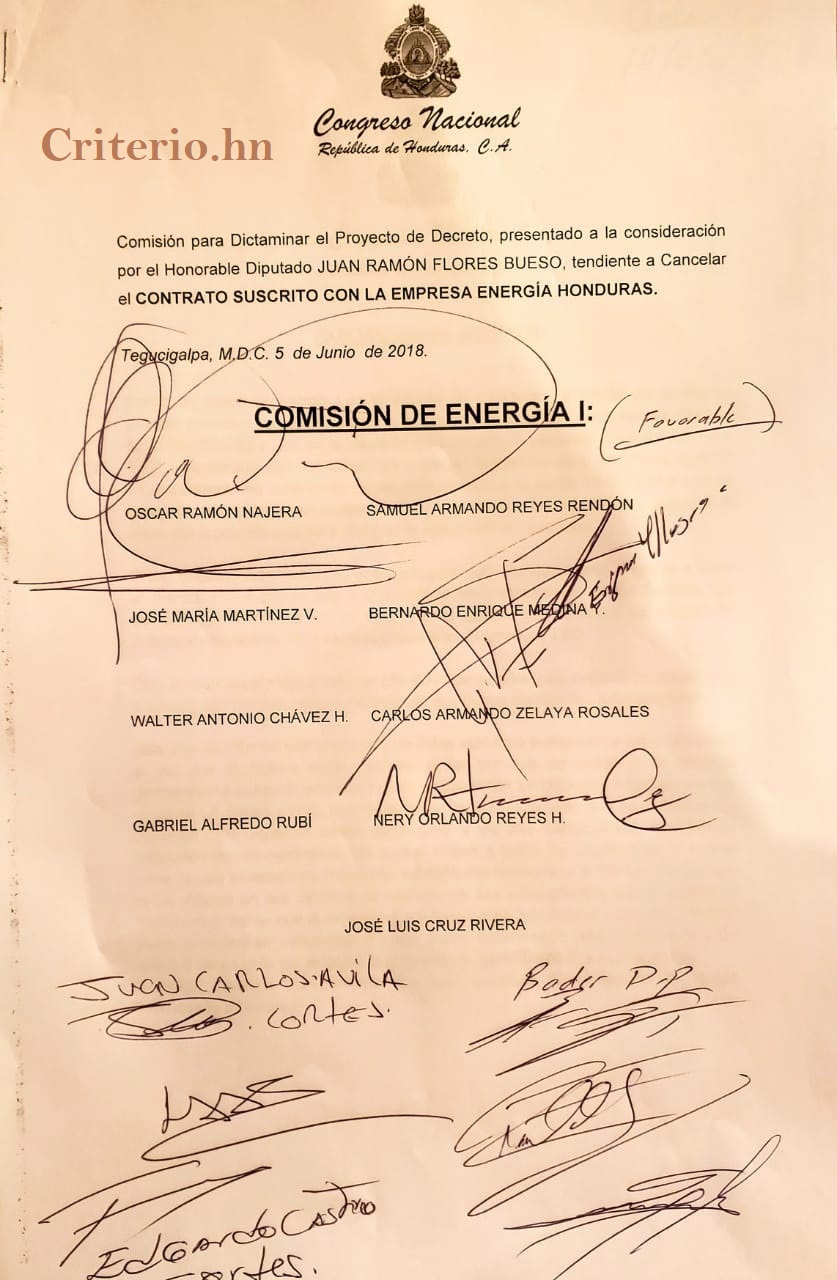 Congreso Nacional
República de Honduras. C.A.
Criterio.hn
Comisión para Dictaminar el Proyecto de Decreto, presentado a la consideración
por el Honorable Diputado JUAN RAMÓN FLORES BUESO, tendiente a Cancelar
el CONTRATO SUSCRITO CON LA EMPRESA ENERGÍA HONDURAS.
Tegucigalpa, M.D.C. 5 de Junio de 2018.
COMISIÓN DE ENERGÍA I:
(Favorable)
OSCAR RAMÓN NAJERA
SAMUEL ARMANDO REYES RENDÓN
JOSÉ MARÍA MARTÍNEZ V.
BERNARDO ENRIQUE MEDINA Y.
WALTER ANTONIO CHÁVEZ H.
CARLOS ARMANDO ZELAYA ROSALES
GABRIEL ALFREDO RUBÍ
NERY ORLANDO REYES H.
JOSÉ LUIS CRUZ RIVERA
JUAN CARLOS AVILA
CORTES.
Bader D-P
EDGARDO CASTRO
Cortes.